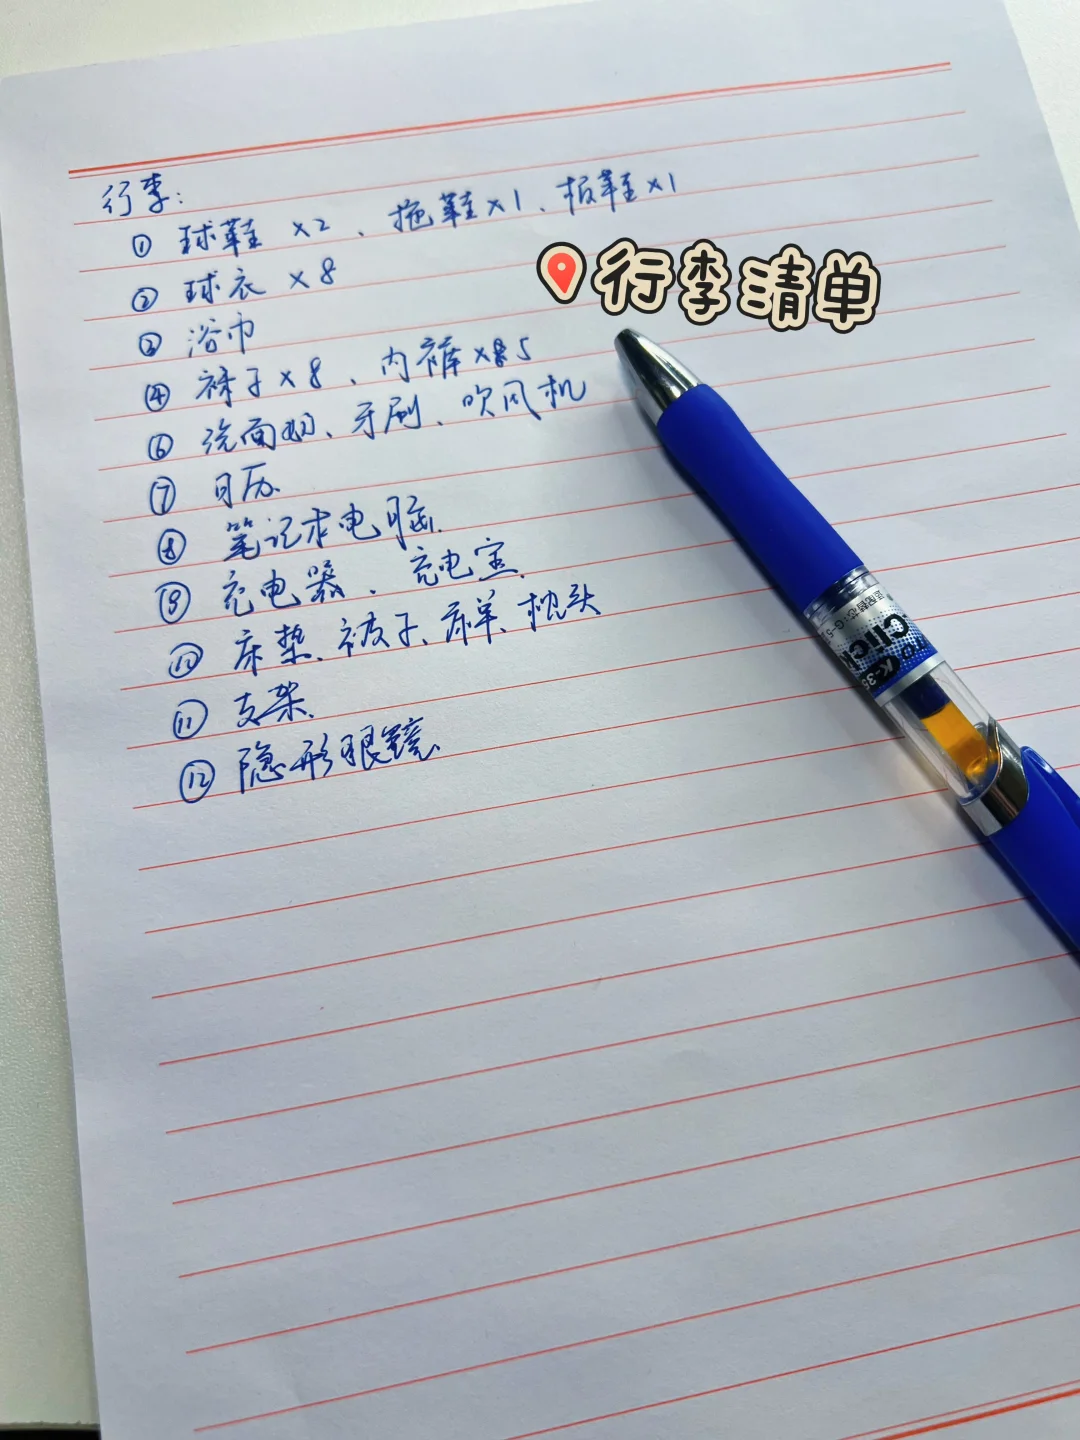 行李:
① 球鞋 ×2、拖鞋×1、板鞋×1
② 球衣 ×8
📍行李清单
③ 浴巾
④ 袜子×8、内裤×5
⑥ 洗面奶、牙刷、吹风机
⑦ 日历
⑧ 笔记本电脑
⑨ 充电器、充电宝
⑩ 床垫、被子、床单、枕头
⑪ 支架
⑫ 隐形眼镜
Click
K-35